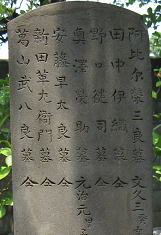 阿比原榮三良墓 文久三癸
田中伊織墓 仝
野口健司墓 仝
奥澤榮助墓 元治元甲
安藤早太良墓 仝
新田革左衛門墓 仝
葛山武八良墓 仝